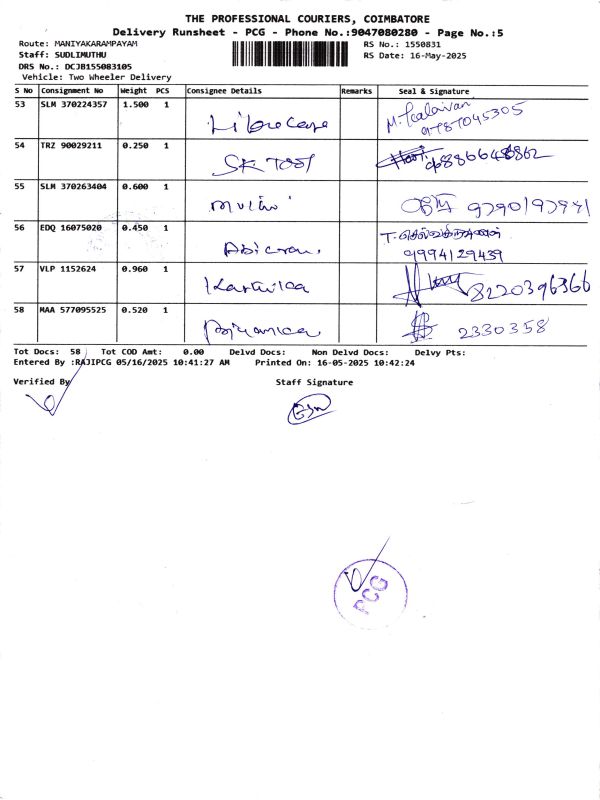 THE PROFESSIONAL COURIERS, COIMBATORE
Delivery Runsheet - PCG - Phone No.:9047080280 - Page No.:5
Route: MANIYAKARAMPAYAM RS No.: 1550831
Staff: SUDLIMUTHU RS Date: 16-May-2025
DRS No.: DCJB155083105
Vehicle: Two Wheeler Delivery
S No Consignment No Weight PCS Consignee Details Remarks Seal & Signature
53 SLM 370224357 1.500 1 M. Kalaivan
9787045305
54 TRZ 90029211 0.250 1 SK Tool
55 SLM 370263404 0.600 1
56 EDQ 16075020 0.450 1
9994129439
57 VLP 1152624 0.960 1 Karthika 8220396366
58 MAA 577095525 0.520 1 Priyanka 2330358
Tot Docs: 58 Tot COD Amt: 0.00 Delvd Docs: Non Delvd Docs: Delvy Pts:
Entered By :RAJIPCG 05/16/2025 10:41:27 AM Printed On: 16-05-2025 10:42:24
Verified By Staff Signature
PCG